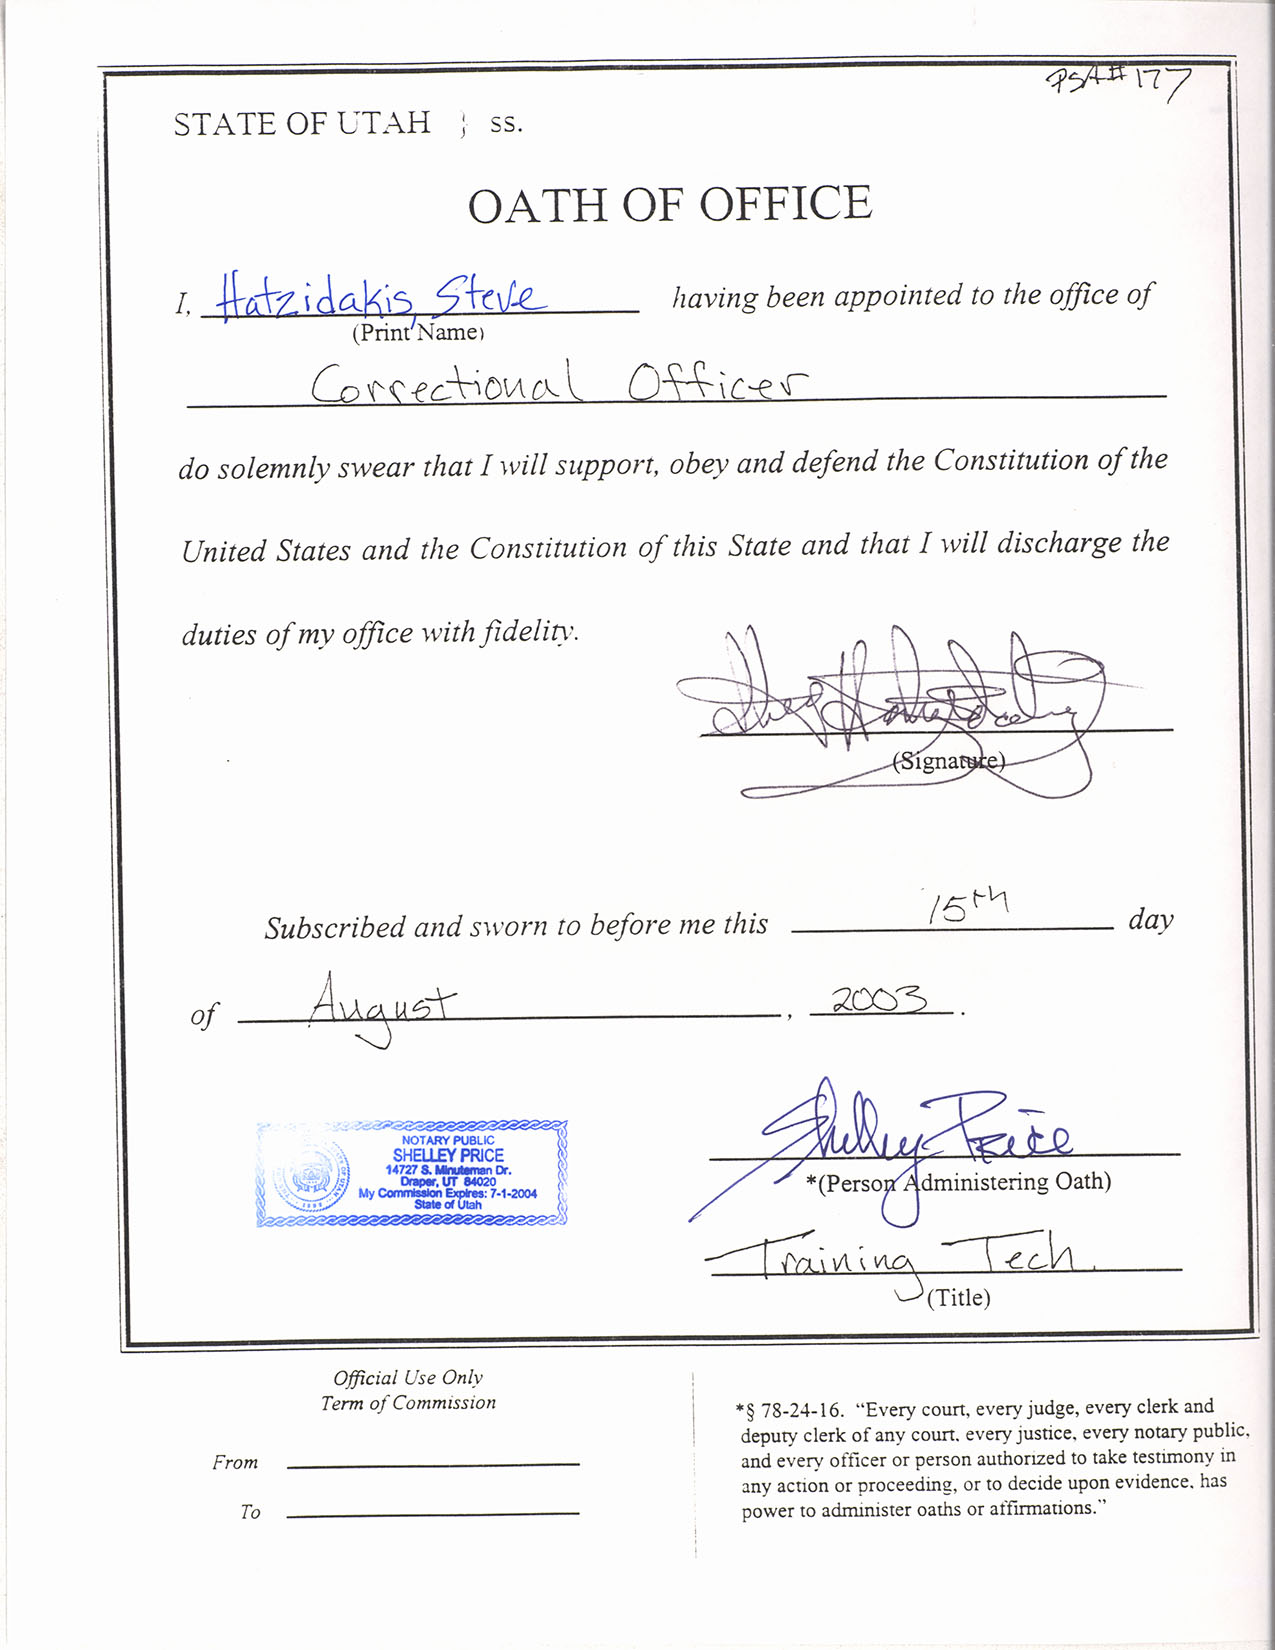 PSA# 177
STATE OF UTAH } ss.
OATH OF OFFICE
I, Hatzidakis, Steve having been appointed to the office of
(Print Name)
Correctional Officer
do solemnly swear that I will support, obey and defend the Constitution of the
United States and the Constitution of this State and that I will discharge the
duties of my office with fidelity.
(Signature)
Subscribed and sworn to before me this 15th day
of August, 2003.
NOTARY PUBLIC
SHELLEY PRICE
14727 S. Minuteman Dr.
Draper, UT 84020
My Commission Expires: 7-1-2004
State of Utah
Shelley Price
*(Person Administering Oath)
Training Tech.
(Title)
Official Use Only
Term of Commission
From
To
*§ 78-24-16. “Every court, every judge, every clerk and
deputy clerk of any court, every justice, every notary public,
and every officer or person authorized to take testimony in
any action or proceeding, or to decide upon evidence, has
power to administer oaths or affirmations.”